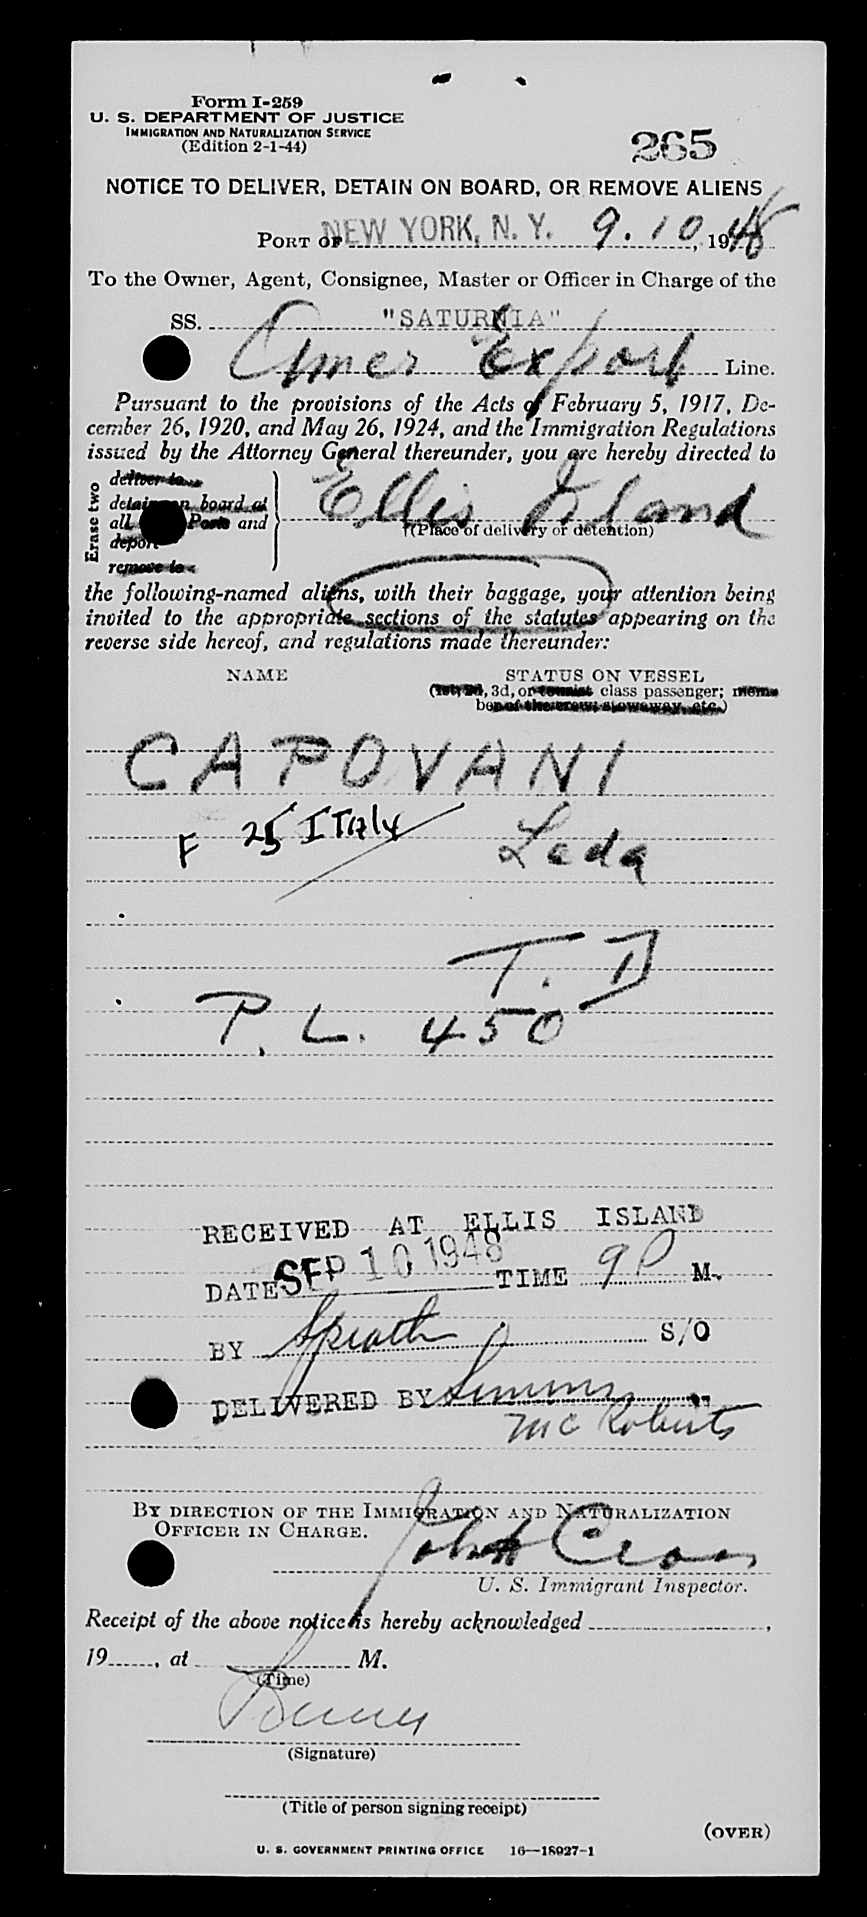 Form I-259
U. S. DEPARTMENT OF JUSTICE
IMMIGRATION AND NATURALIZATION SERVICE
(Edition 2-1-44)
265
NOTICE TO DELIVER, DETAIN ON BOARD, OR REMOVE ALIENS
PORT OF NEW YORK, N. Y. 9.10, 1948
To the Owner, Agent, Consignee, Master or Officer in Charge of the
SS. "SATURNIA"
Amer Export Line.
Pursuant to the provisions of the Acts of February 5, 1917, De-
cember 26, 1920, and May 26, 1924, and the Immigration Regulations
issued by the Attorney General thereunder, you are hereby directed to
Erase two
deliver to
detain on board at
all Ports and
deport
remove to
Ellis Island
†(Place of delivery or detention)
the following-named aliens, with their baggage, your attention being
invited to the appropriate sections of the statutes appearing on the
reverse side hereof, and regulations made thereunder:
NAME STATUS ON VESSEL
(1st, 2d, 3d, or tourist class passenger; mem-
ber of the crew; stowaway, etc.)
CAPOVANI
F 25 ITaly Leda
T. D
P. L. 450
RECEIVED AT ELLIS ISLAND
DATE SEP 10 1948 TIME 9 P M.
BY S/O
DELIVERED BY Simms
McRoberts
BY DIRECTION OF THE IMMIGRATION AND NATURALIZATION
OFFICER IN CHARGE.
John Cross
U. S. Immigrant Inspector.
Receipt of the above notice is hereby acknowledged ,
19 , at M.
(Time)
(Signature)
(Title of person signing receipt)
(OVER)
U. S. GOVERNMENT PRINTING OFFICE 16—18027-1